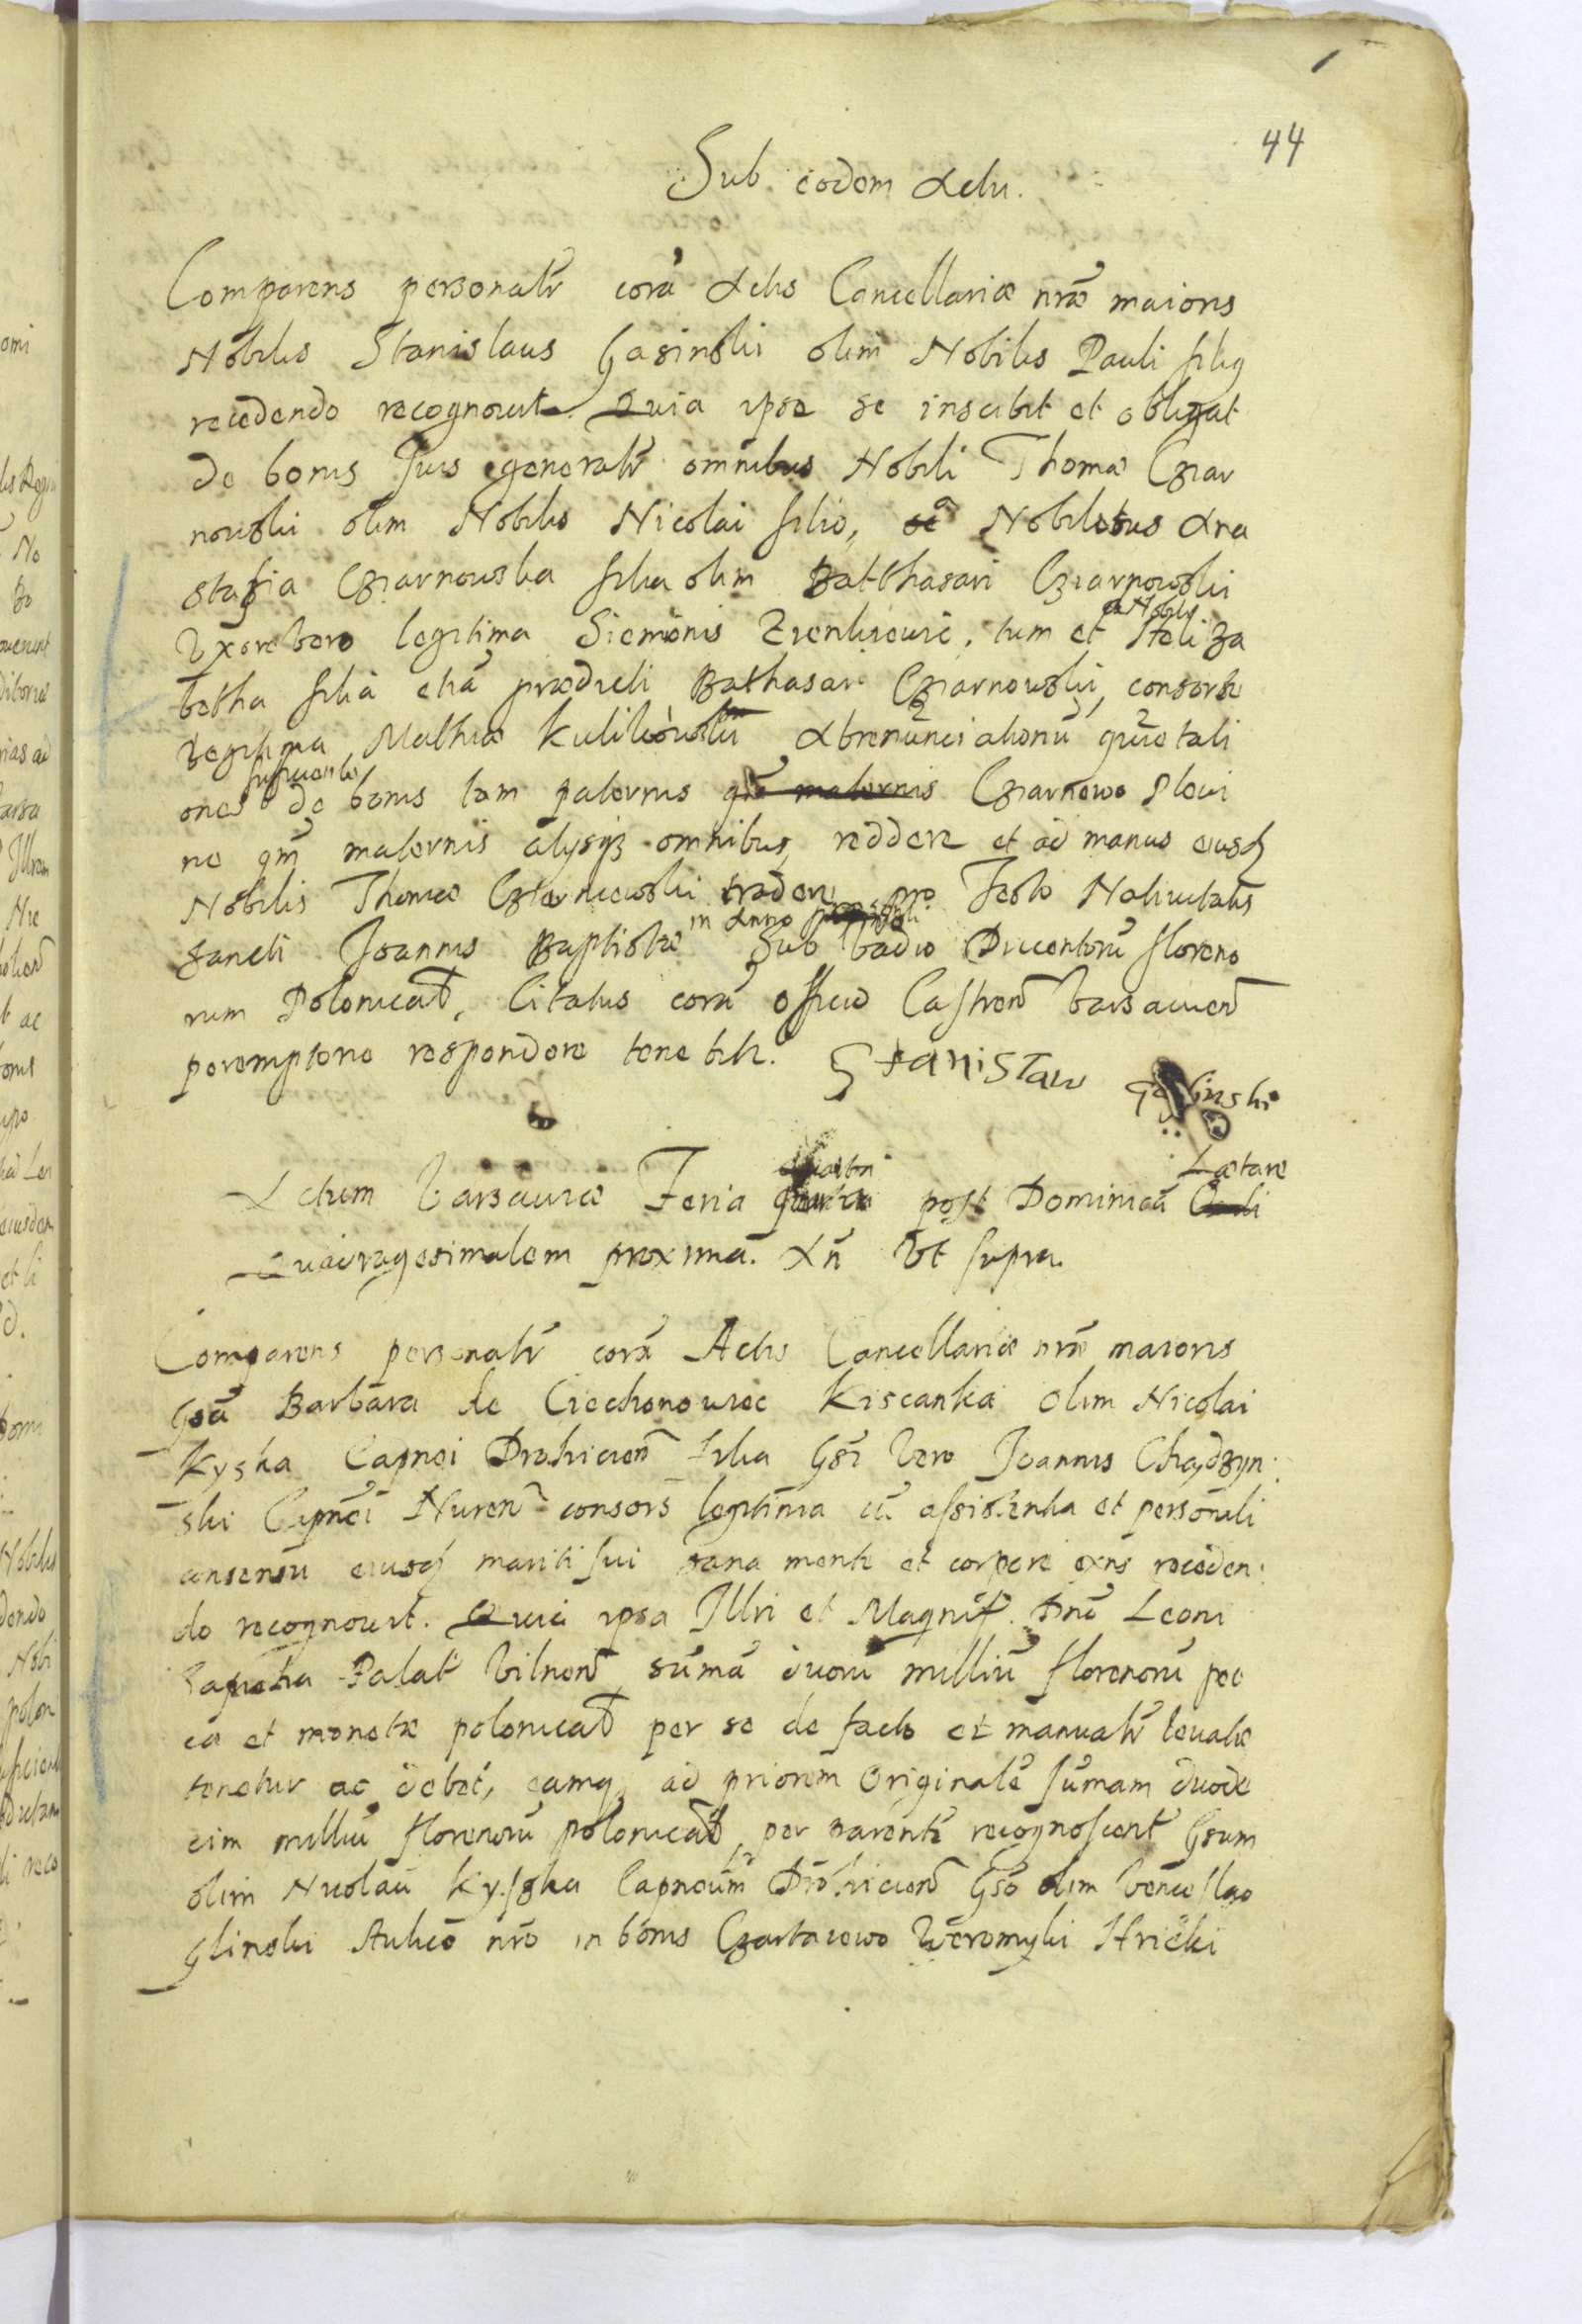 44
Sub eodem Actu.
Comparens personalr̃ corã Actis Cancellariæ nrӕ̃ maioris
Nobilis Stanislaus Gasinski olim Nobilis Pauli filiꝯ
recedendo recognouit. Quia ipse se inscribit et obligat
de bonis suis generalr̃ omnibus Nobili Thomæ Czar
nowski olim Nobilis Nicolai filio, a Nobilibus Ana
stasia Czarnowska filia olim Balthasari Czarnowski
Vxore vero legitima Siemonis, tum et a Nobili Heliza
betha filia etiã prædicti Bathasari Czarnowski, consorte
legitima Mathiæ Kulikowski Abrenunciationũ quietati
ones sufficientes de bonis tam paternis qm̃ maternis Czarnowo
ne qm̃ maternis alysqꝫ omnibus, reddere et ad manus eiusdẽ
Nobilis Thomæ Czarnowski tradere pro Festo Natiuitatis
Sancti Joannis Baptistæ in Anno Sub vadio Ducentorũ floreno
rum Polonical̃, Citatus corã officio Castren̄ Varsauien̄
peremptorie respondere tenebitr.
Stanisław Gasinski
Actum Varsauiæ Feria post Dominicã Lætare
Quadragesimalem proximã. An̄ Vt supra.
Comparens personalr̃ corã Actis Cancellariæ nrӕ̃ maioris
Gsã Barbara de Ciechonowiec Kiscanka olim Nicolai
Kyska Capnei Drohicien̄ filia Gsi Vero Joannis Chądzyn:
ski Capnei Nuren̄ consors legitima cũ assistentia et personali
consensu eiusdẽ mariti sui sana mente et corpore exn̄s receden:
do recognouit. Quia ipsa Illri et Magnif. Dnõ Leoni
Sapieha Palat̃ Vilnen̄ sũmã duorũ milliũ florenorũ pec
ca et monetæ polonical̃ per se de facto et manualr̃ leuatã
tenetur ac debet, eamqꝫ ad priorem Originalẽ sũmam duode
cim milliũ florenorũ polonical̃ per parentẽ recognoscent̃ Gsum
olim Nicolaũ Kyszka Capneum Drohicien̄ Gsõ olim Venceslao
Glinski Aulico nrõ in bonis Czartaiewo Weromyki Hricki